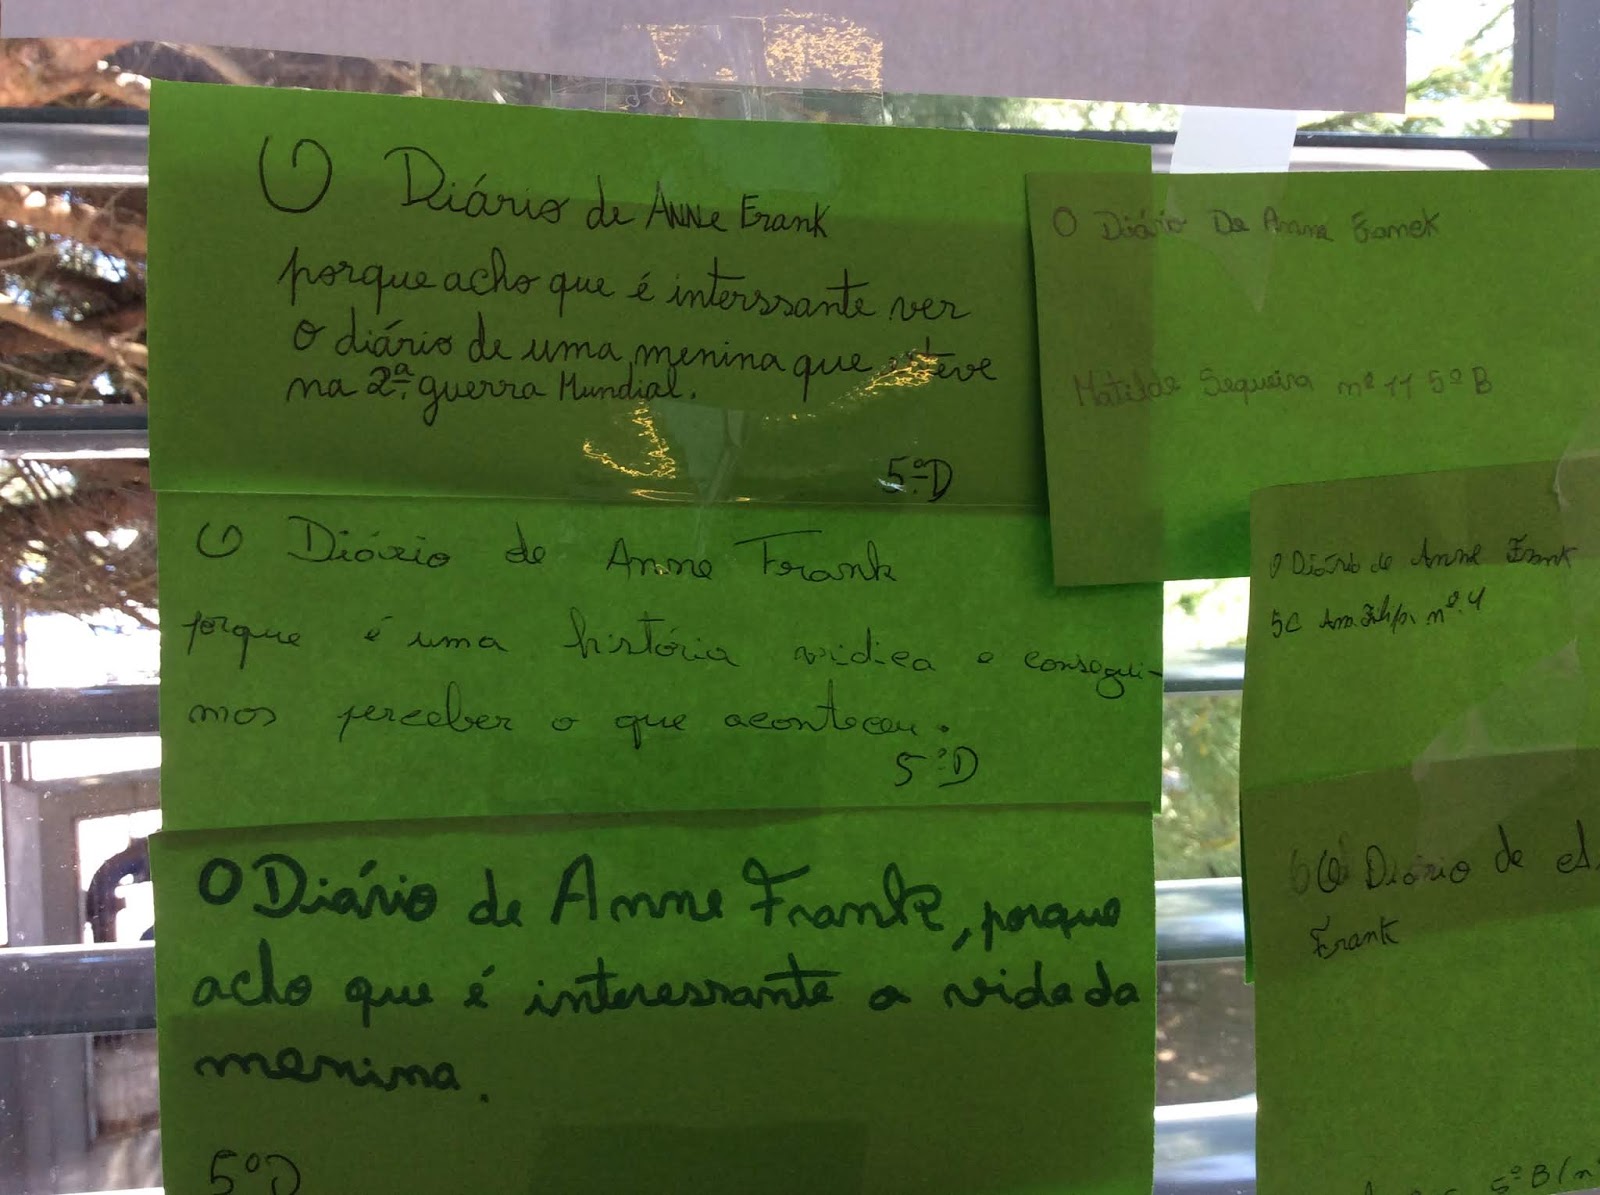 O Diário de Anne Frank
porque acho que é interssante ver
o diário de uma menina que esteve
na 2ª guerra Mundial.
5.ºD
O Diário de Anne Frank
porque é uma história vidica e consegui-
mos perceber o que aconteceu.
5ºD
O Diário de Anne Frank, porque
acho que é interessante a vida da
menina.
5ºD
O Diário De Anne Framek
Matilde Sequeira nº 11 5º B
O Diário de Anne Frank
5C nº 4
O Diário de
Frank
5º B